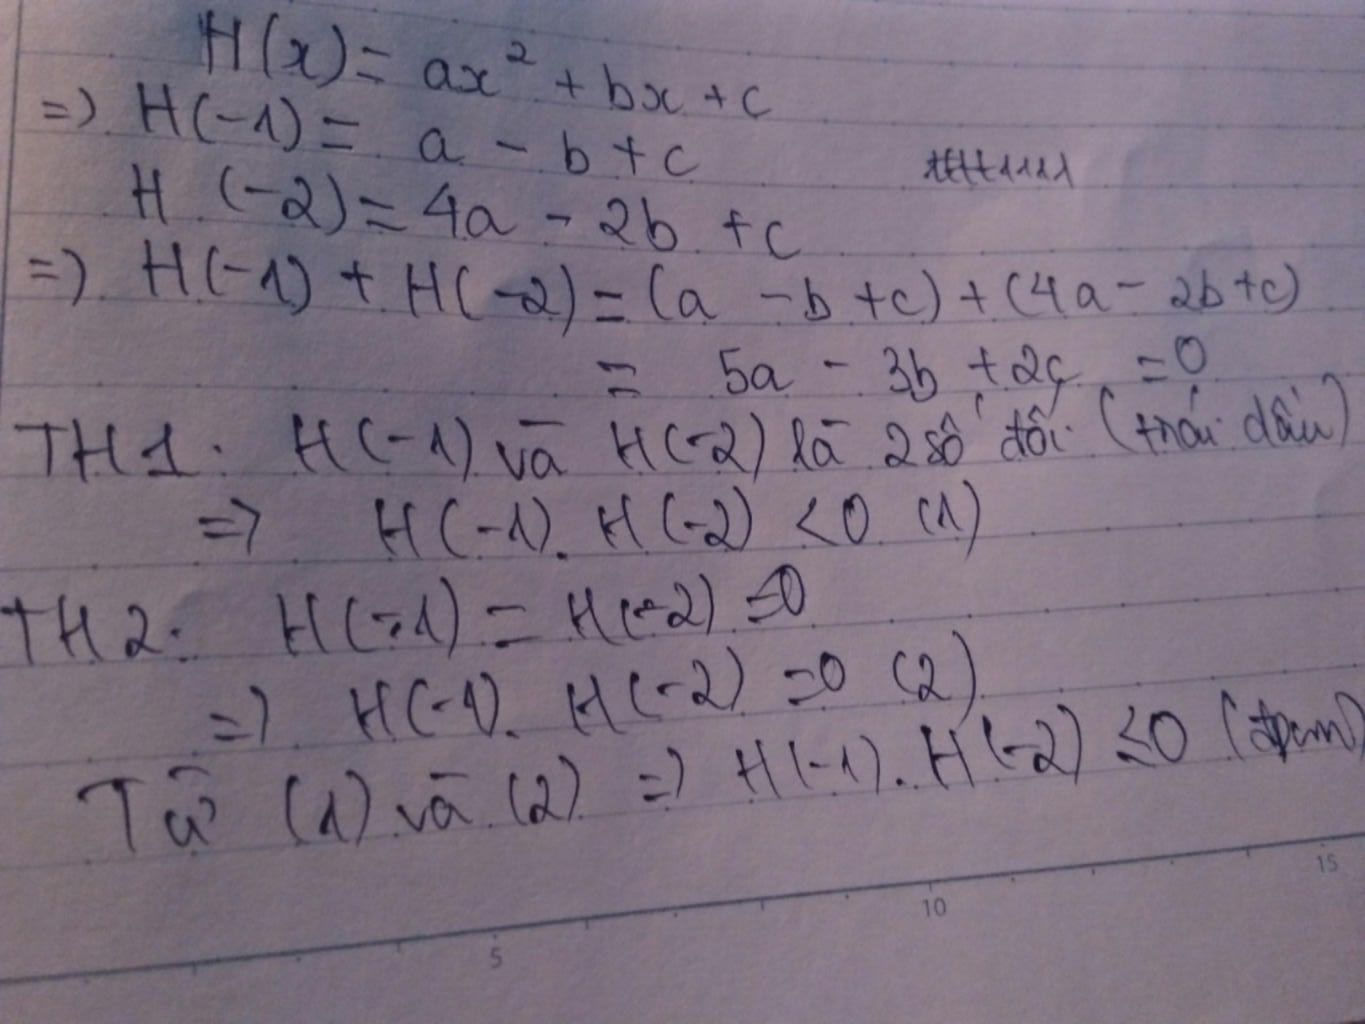 H(x) = ax² + bx + c
=) H(-1) = a - b + c
H (-2) = 4a - 2b + c
=) H(-1) + H(-2) = (a - b + c) + (4a - 2b + c)
= 5a - 3b + 2c = 0
TH1: H(-1) và H(-2) là 2 số đối (trái dấu)
=> H(-1). H(-2) < 0 (1)
TH2: H(-1) = H(-2) = 0
=) H(-1). H(-2) = 0 (2)
Từ (1) và (2) =) H(-1). H(-2) ≤ 0 (đpcm)
5 10 15